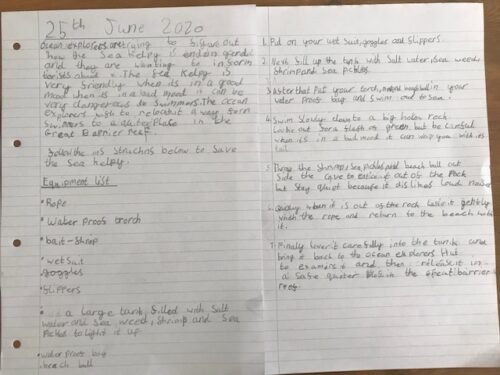 25th June 2020
Ocean explorers are trying to find out
how the Sea Kelpy is endangered
and they are wanting to inform
tourists about it. The Sea Kelpy is
very friendly when its in a good
mood when its in a bad mood it can be
very dangerous to swimmers. The ocean
explorers wish to relocate it away from
swimmers to a quieter place in the
Great Barrier reef.
Follow the instructions below to save
the Sea kelpy.
Equipment list
• Rope
• Water proof torch
• bait - Shrimp
• wetsuit
• goggles
• slippers
a large tank, filled with Salt
water and sea weed, shrimp and Sea
Pickles to light it up.
• water proof bag
• beach ball
1. Put on your wet Suit, goggles and Slippers.
2. Next fill up the tank with Salt water, Sea weed,
Shrimp and Sea pickles.
3. After that Put your torch, in your
water proof bag and Swim out to Sea.
4. Swim slowly down to a big hole in rock
Look out for a flash of green but be careful
when its in a bad mood it can whip you with its
tail
5. Throw the Shrimp, Sea pickles and beach ball out
side the cave to entice it out of the Rock
but Stay quiet because it dislikes loud noises
6. Quickly when it is out of the rock lasso it gently
with the rope and return to the beach with
it.
7. Finaly lower it carefully into the tank and
bring it back to the ocean explorers Hut
to examine it and then release it in
a safe quieter place in the great barrier
reef.